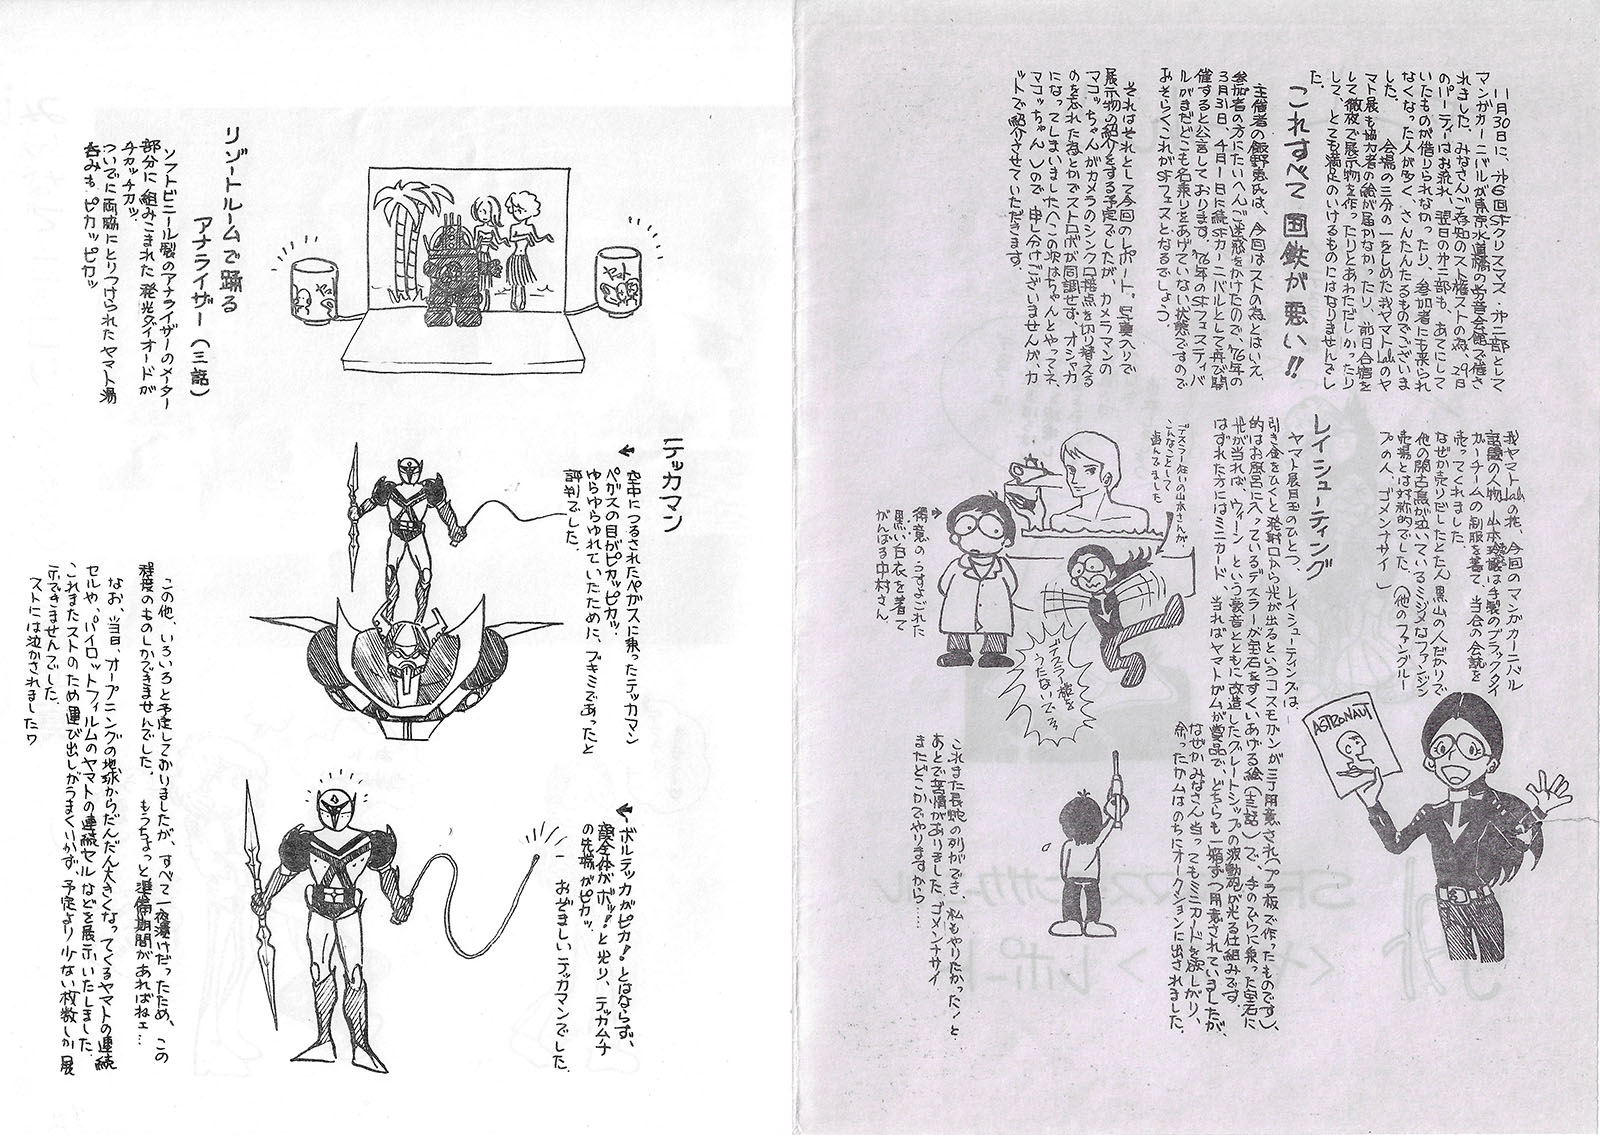 十一月30日に、オ6回SFクリスマス・オ二部として
マンガカーニバルが東京水道橋の労音会館で催さ
れました。みなさんご存知のスト権ストの為、29日
のパーティーはお流れ、翌日のオ二部も、あてにして
いたものが借りられなかったり、参加者にも来られ
なくなった人が多く、さんたんたるものでございま
した。 会場の三分の一をしめた我ヤマトLabのヤ
マト展も協力者の絵が届かなかったり、前日合宿を
して徹夜で展示物を作ったりとあわただしかったり
して、とても満足のいけるものにはなりませんでし
た。
これすべて国鉄が悪い!!
主催者の飯野恵氏は、今回はストの為とはいえ、
参加者の方にたいへんご迷惑をかけたので、'76年の
3月31日、4月1日に続SFカーニバルとして再び開
催すると公言しております。'76年のSFフェスティバ
ルがまだどこも名乗りをあげていない状態ですので
おそらくこれがSFフェスとなるでしょう。
それはそれとして今回のレポート、写真入りで
展示物の紹介をする予定でしたが、カメラマンの
マコッちゃんがカメラのシンクロ接点を切り替える
のを忘れた為とかでストロボが同調せず、オシャカ
になってしまいました(この次はちゃんとやってネ、
マコッちゃん)ので、申し分けございませんが、カ
ットで紹介させていただきます。
我ヤマトLabの花、今回のマンガカーニバル
話題の人物、山本玲嬢は手製のブラックタイ
ガーチームの制服を着て、当会の会誌を
売ってくれました。
なぜか売りだしたとたん黒山の人だかりで
他の閑古鳥が泣いているミジメなファンジン
売場とは対称的でした。(他のファングルー
プの人、ゴメンナサイ)
ASTRONAUT
レイシューティング
ヤマト展目玉のひとつ、レイシューティングは、
引き金をひくと発射口から光が出るというコスモガンが三丁用意され(プラ板で作ったものです)、
的はお風呂に入っているデスラーが宝石をすくいあげる絵(三話)で、手のひらに乗った宝石に
光が当れば、ウィーンという豪音とともに改造したグレートシップの波動砲が光る仕組みです。
はずれた方にはミニカード、当ればヤマトガムが賞品で、どちらも一箱ずつ用意されていましたが、
なぜかみなさん当ってもミニカードを欲しがり、
余ったガムはのちにオークションに出されました。
デスラー狂いの山本さんが
こんなことして
歯んでました
デスラー様を
うたないで〜
得意のうすよごれた
黒い白衣を着て
がんばる中村さん
これまた長蛇の列ができ、「私もやりたかった」と
あとで苦情がありました。ゴメンナサイ
またどこかでやりますから……
テッカマン
空中につるされたペガスに乗ったテッカマン
ペガスの目がピカッピカッ。
ゆらゆらゆれていたために、ブキミであったと
評判でした。
ボルテッカがピカ!とはならず、
顔全体が、ボッ!と光り、テッカムチ
の先端がピカッ
― おぞましいテッカマンでした。
リゾートルームで踊る
アナライザー(三話)
ソフトビニール製のアナライザーのメーター
部分に組みこまれた発光ダイオードが
チカッチカッ。
ついでに両脇にとりつけられたヤマト湯
呑みも ピカッピカッ
ヤマト
この他、いろいろと予定しておりましたが、すべて一夜漬けだったため、この
程度のものしかできませんでした。 もうちょっと準備期間があればねェ…
なお、当日、オープニングの地球からだんだん大きくなってくるヤマトの連続
セルや、パイロットフィルムのヤマトの連続セルなどを展示いたしました。
これまたストのため運び出しがうまくいかず、予定より少ない枚数しか展
示できませんでした。
ストには泣かされましたワ